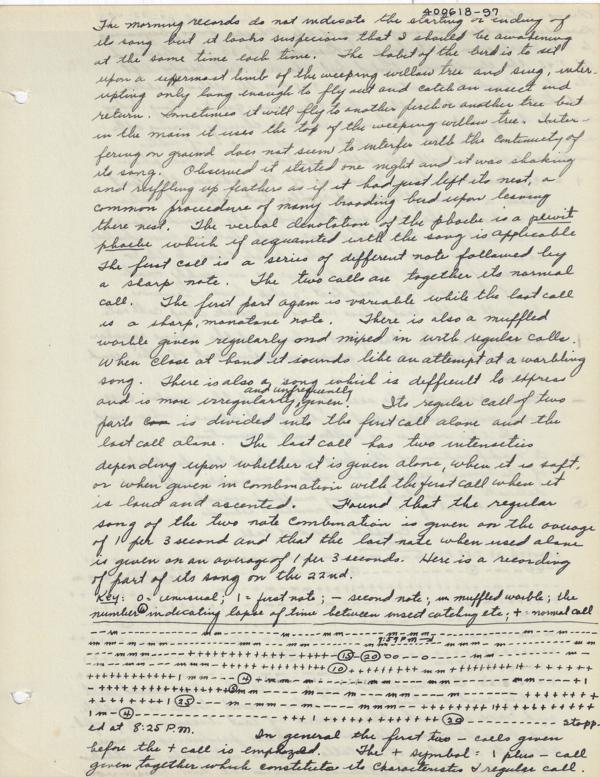 400618-97
The morning records do not indicate the starting or ending of
its song but it looks suspicious that I should be awakening
at the same time each time. The habit of the bird is to sit
upon a uppermost limb of the weeping willow tree and sing, inter-
upting only long enough to fly out and catch an insect and
return. Sometimes it will fly to another perch or another tree but
in the main it uses the top of the weeping willow tree. Inter-
fering on ground does not seem to interfer with the continuity of
its song. Observed it started one night and it was shaking
and ruffling up feathers as if it had just left its nest, a
common proceedure of many brooding bird upon leaving
there nest. The verbal denotation of the phoebe is a pewit
phoebe which if acquanted with the song is applicable
The first call is a series of different note followed by
a sharp note. The two calls are together its normal
call. The first part again is variable while the last call
is a sharp, monatone note. There is also a muffled
warble given regularly and mixed in with regular calls.
When close at hand it sounds like an attempt at a warbling
song. There is also a song which is difficult to express
and is more irregularly and unfrequently given. Its regular call of two
parts is divided into the first call alone and the
last call alone. The last call has two intensities
depending upon whether it is given alone, when it is soft,
or when given in combination with the first call when it
is loud and ascented. Found that the regular
song of the two note combination is given on the average
of 1 per 3 second and that the last note when used alone
is given on an average of 1 per 3 seconds. Here is a recording
of part of its song on the 22nd.
Key: 0 = unusual; 1 = first note; - second note; m muffled warble; the
number indicating lapse of time between insect catching etc; + normal call
7:59 P.M.
15 20
10
4
25
1 m - 4 20 stopp-
ed at 8:25 P.M. In general the first two - calls given
before the + call is employed. The + symbol = 1 plus - call
given together which constitutes its characteristic & regular call.